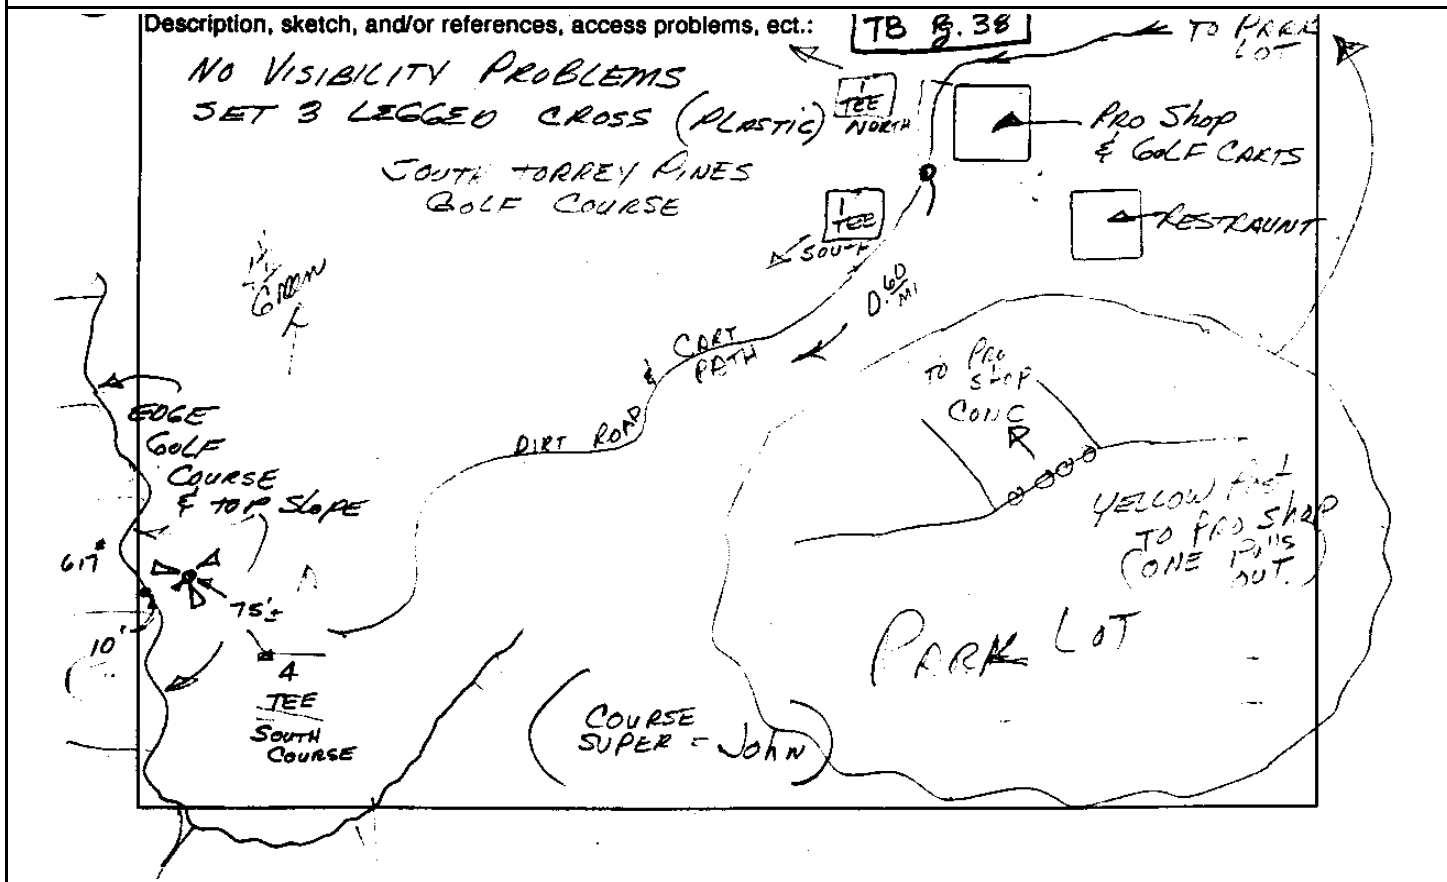 Description, sketch, and/or references, access problems, ect.:
TB Pg. 38
TO PARK
LOT
NO VISIBILITY PROBLEMS
SET 3 LEGGED CROSS (PLASTIC)
1
TEE
NORTH
PRO Shop
& GOLF CARTS
SOUTH TORREY PINES
GOLF COURSE
1
TEE
SOUTH
RESTRAUNT
Green
0.60
MI
CART
PATH
&
DIRT ROAD
TO PRO
SHOP
CONC
EDGE
GOLF
COURSE
& TOP SLOPE
YELLOW
TO PRO Shop
(ONE Pulls
OUT.)
617
75'±
10'
4
TEE
SOUTH
COURSE
PARK LOT
(COURSE
SUPER = John)